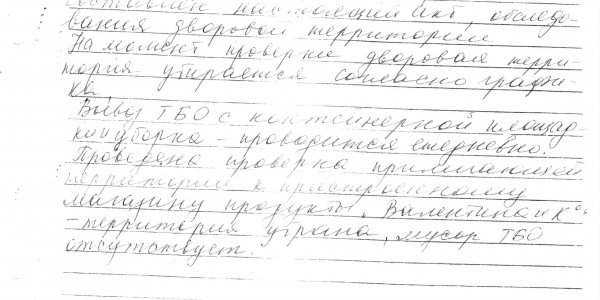 составлен настоящий Акт, обследо-
вания дворовой территории
На момент проверки дворовая терри-
тория убирается согласно графи-
ка,
Вывоз ТБО с контейнерной площад-
ки и уборка - проводится ежедневно.
Проведена проверка прилегающей
территории к пристроенному
магазину продукты "Валентина и К°"
- территория убрана, мусор ТБО
отсутствует.